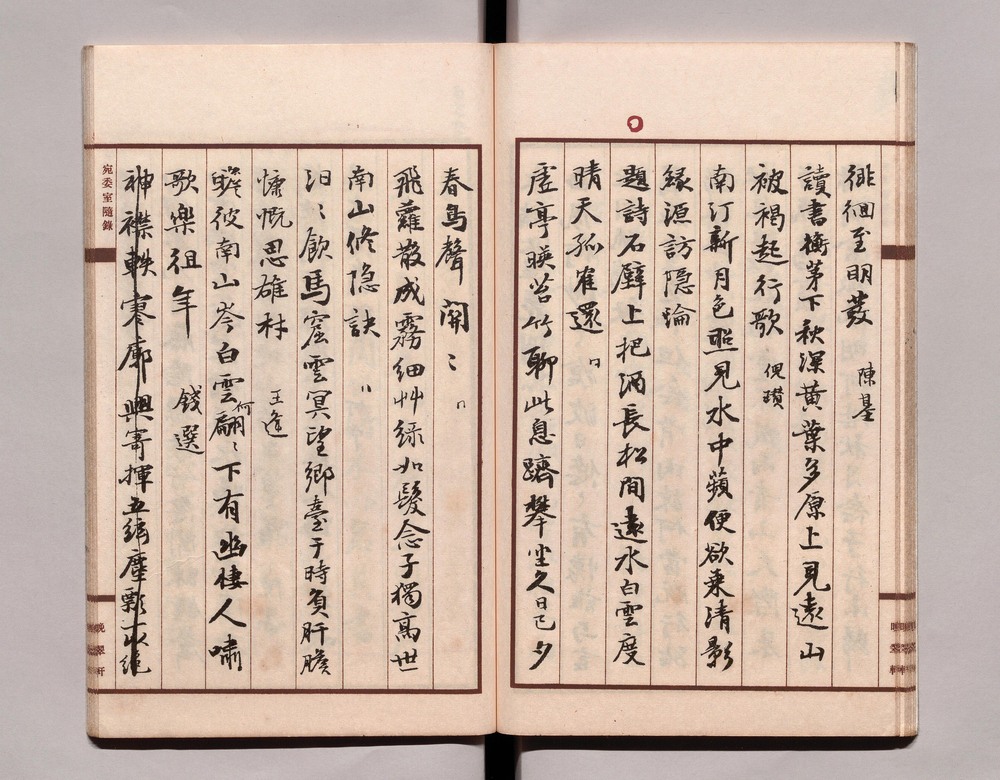 徘徊至明發 陳基
讀書衡茅下秋深黃葉多原上見遠山
被褐起行歌 倪瓚
南汀新月色照見水中蘋便欲乘清影
緣源訪隠淪
題詩石壁上把酒長松間遠水白雲度
晴天孤隺還 〃
虛亭暎苔竹聊此息躋攀坐久日已夕
春鳥聲関〻 〃
飛蘿散成霧細艸綠如髮念子獨高世
南山修隐訣 〃
汩〻飲馬窟雲冥望鄉臺于時負肝膽
慷慨思雄材 王逢
瞻彼南山岑白雲何翩〻下有幽棲人嘯
歌樂徂年 錢選
神襟軼寥廓興寄揮五絃塵影一以絕
宛委室隨錄
晚翠軒